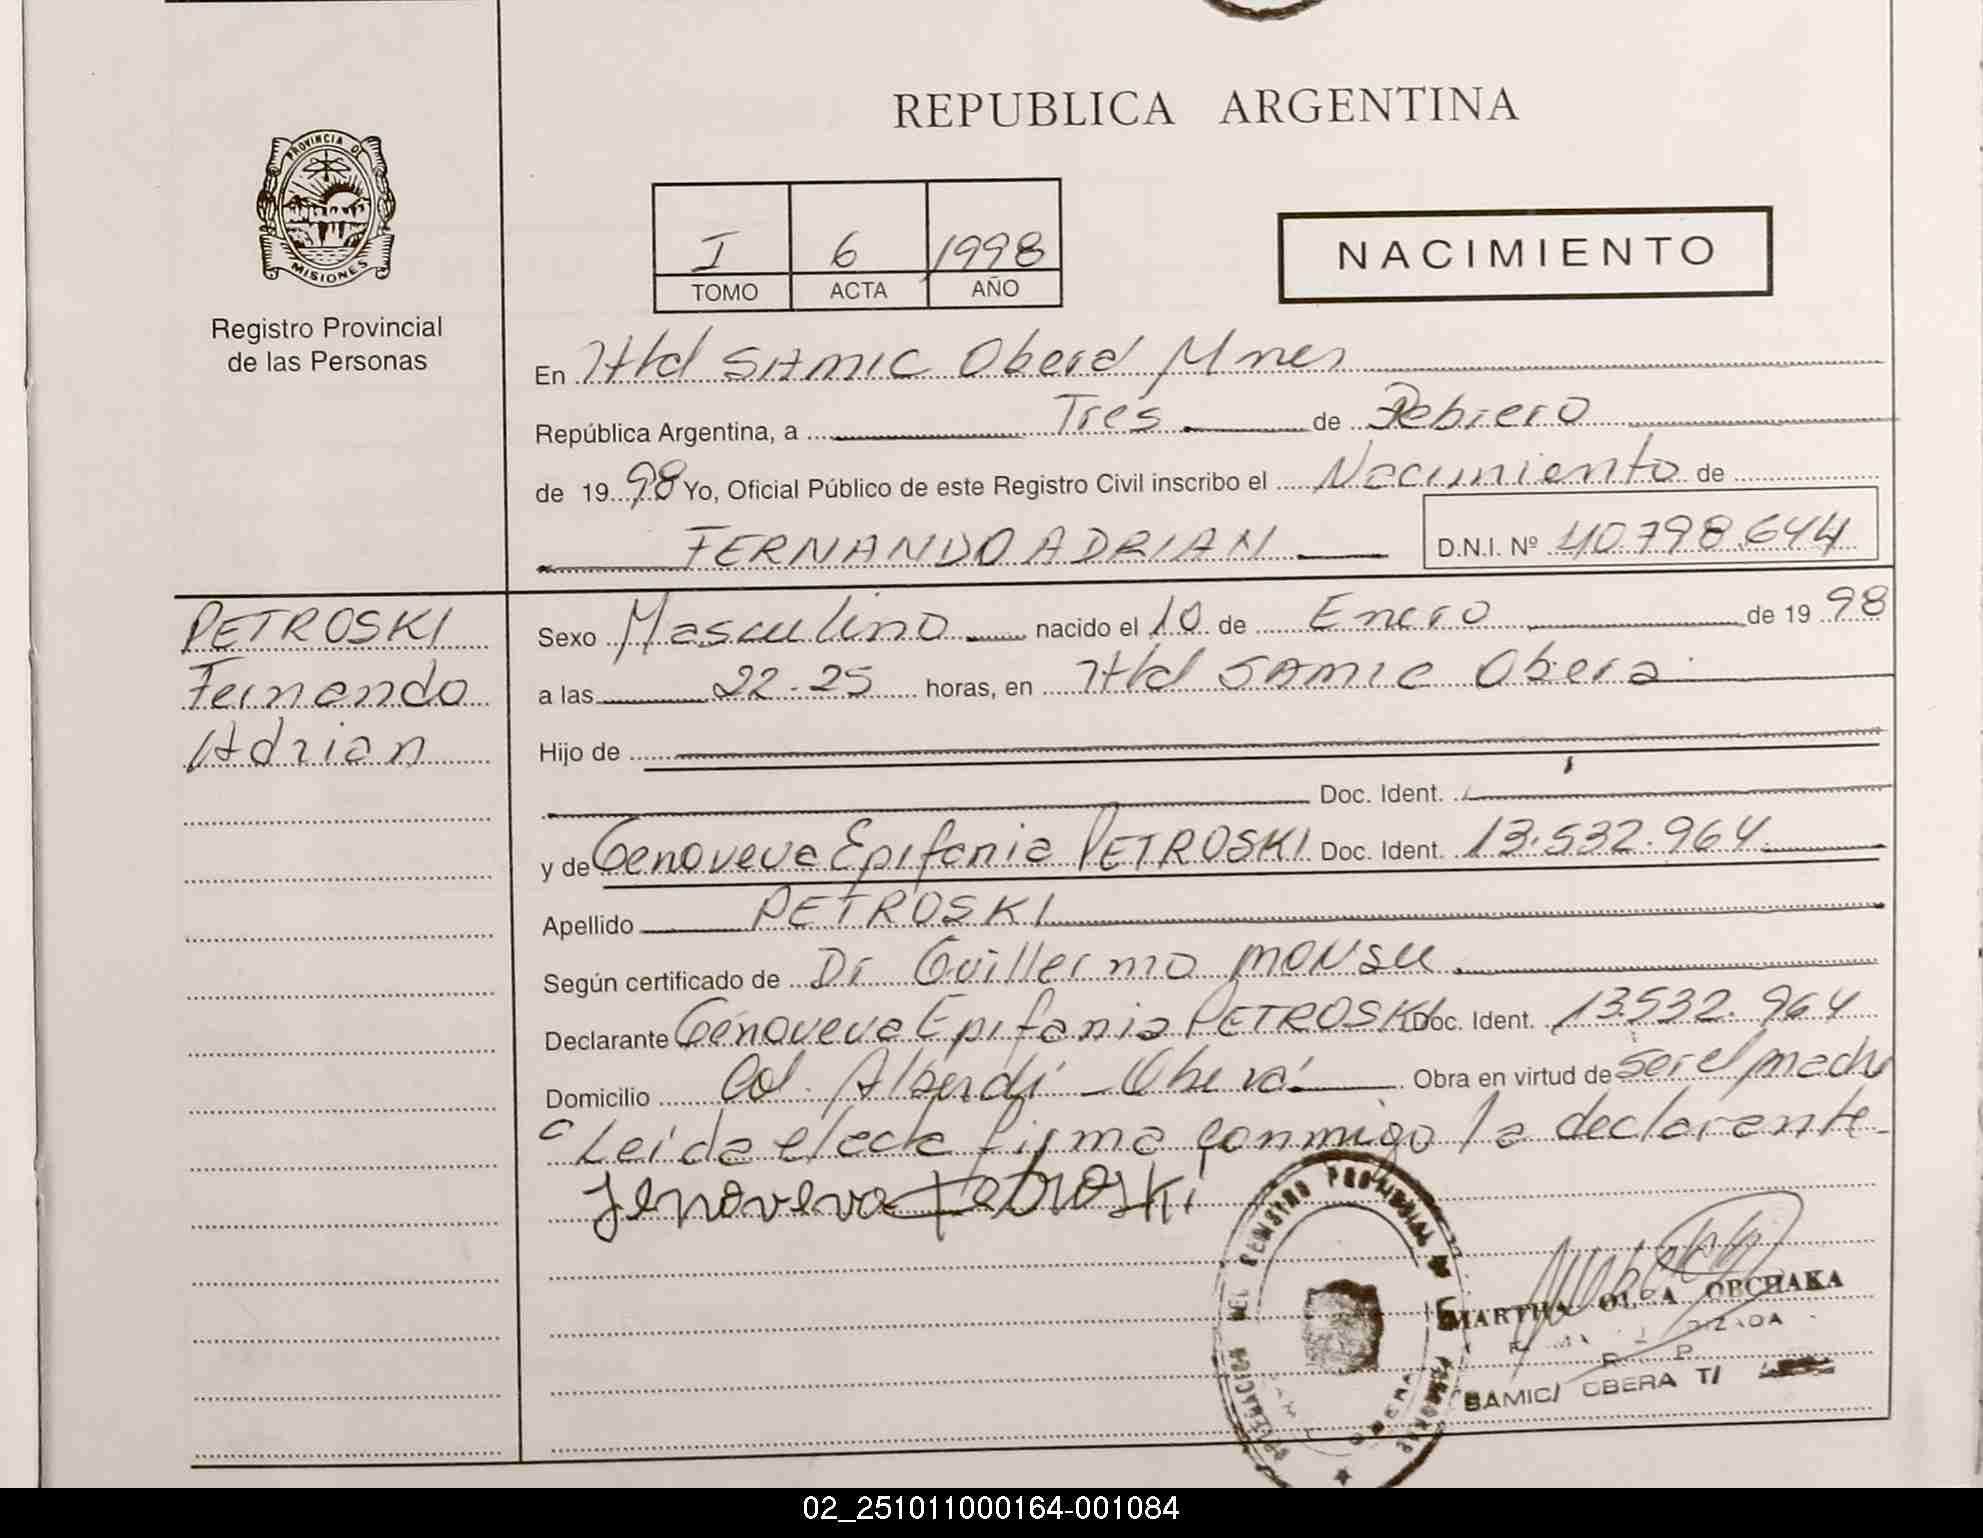 REPUBLICA ARGENTINA
PROVINCIA DE
MISIONES
Registro Provincial
de las Personas
I 6 1998
TOMO ACTA AÑO
NACIMIENTO
En Htal SAMIC Oberá Mnes
República Argentina, a Tres de Febrero
de 1998 Yo, Oficial Público de este Registro Civil inscribo el Nacimiento de
FERNANDO ADRIAN D.N.I. Nº 40.798.644
PETROSKI
Fernando
Adrian
Sexo Masculino nacido el 10 de Enero de 1998
a las 22.25 horas, en Htal SAMIC Obera
Hijo de
Doc. Ident.
y de Genoveva Epifania PETROSKI Doc. Ident. 13.532.964
Apellido PETROSKI
Según certificado de Dr Guillermo MONSU
Declarante Genoveva Epifania PETROSKI Doc. Ident. 13.532.964
Domicilio Col. Alberdi - Oberá Obra en virtud de ser el madre
Leida el acta firma conmigo la declarante
Genoveva Petroski
REGISTRO PROVINCIAL DE
MARTHA OLGA OBCHAKA
SAMIC/ OBERA T/
02_251011000164-001084